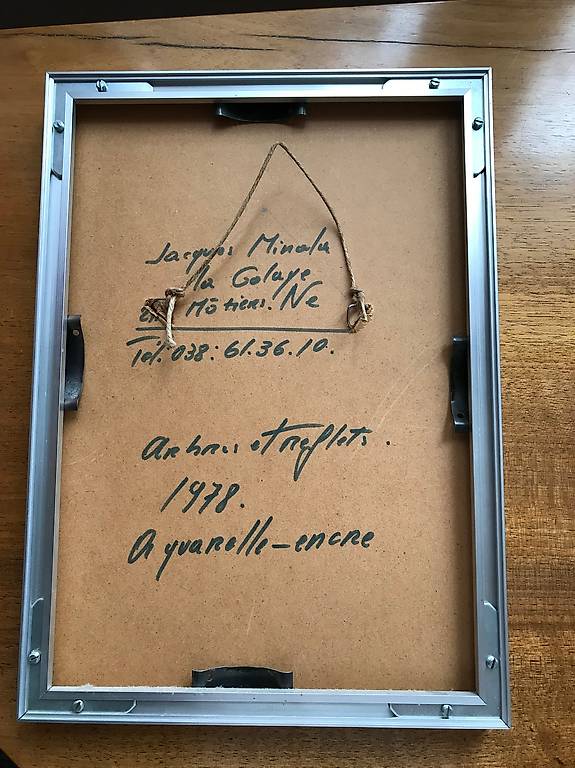 Jacques Minala
la Golaye
Môtiers. Ne
Tél. 038: 61.36.10.
Arbres et reflets.
1978.
Aquarelle-encre